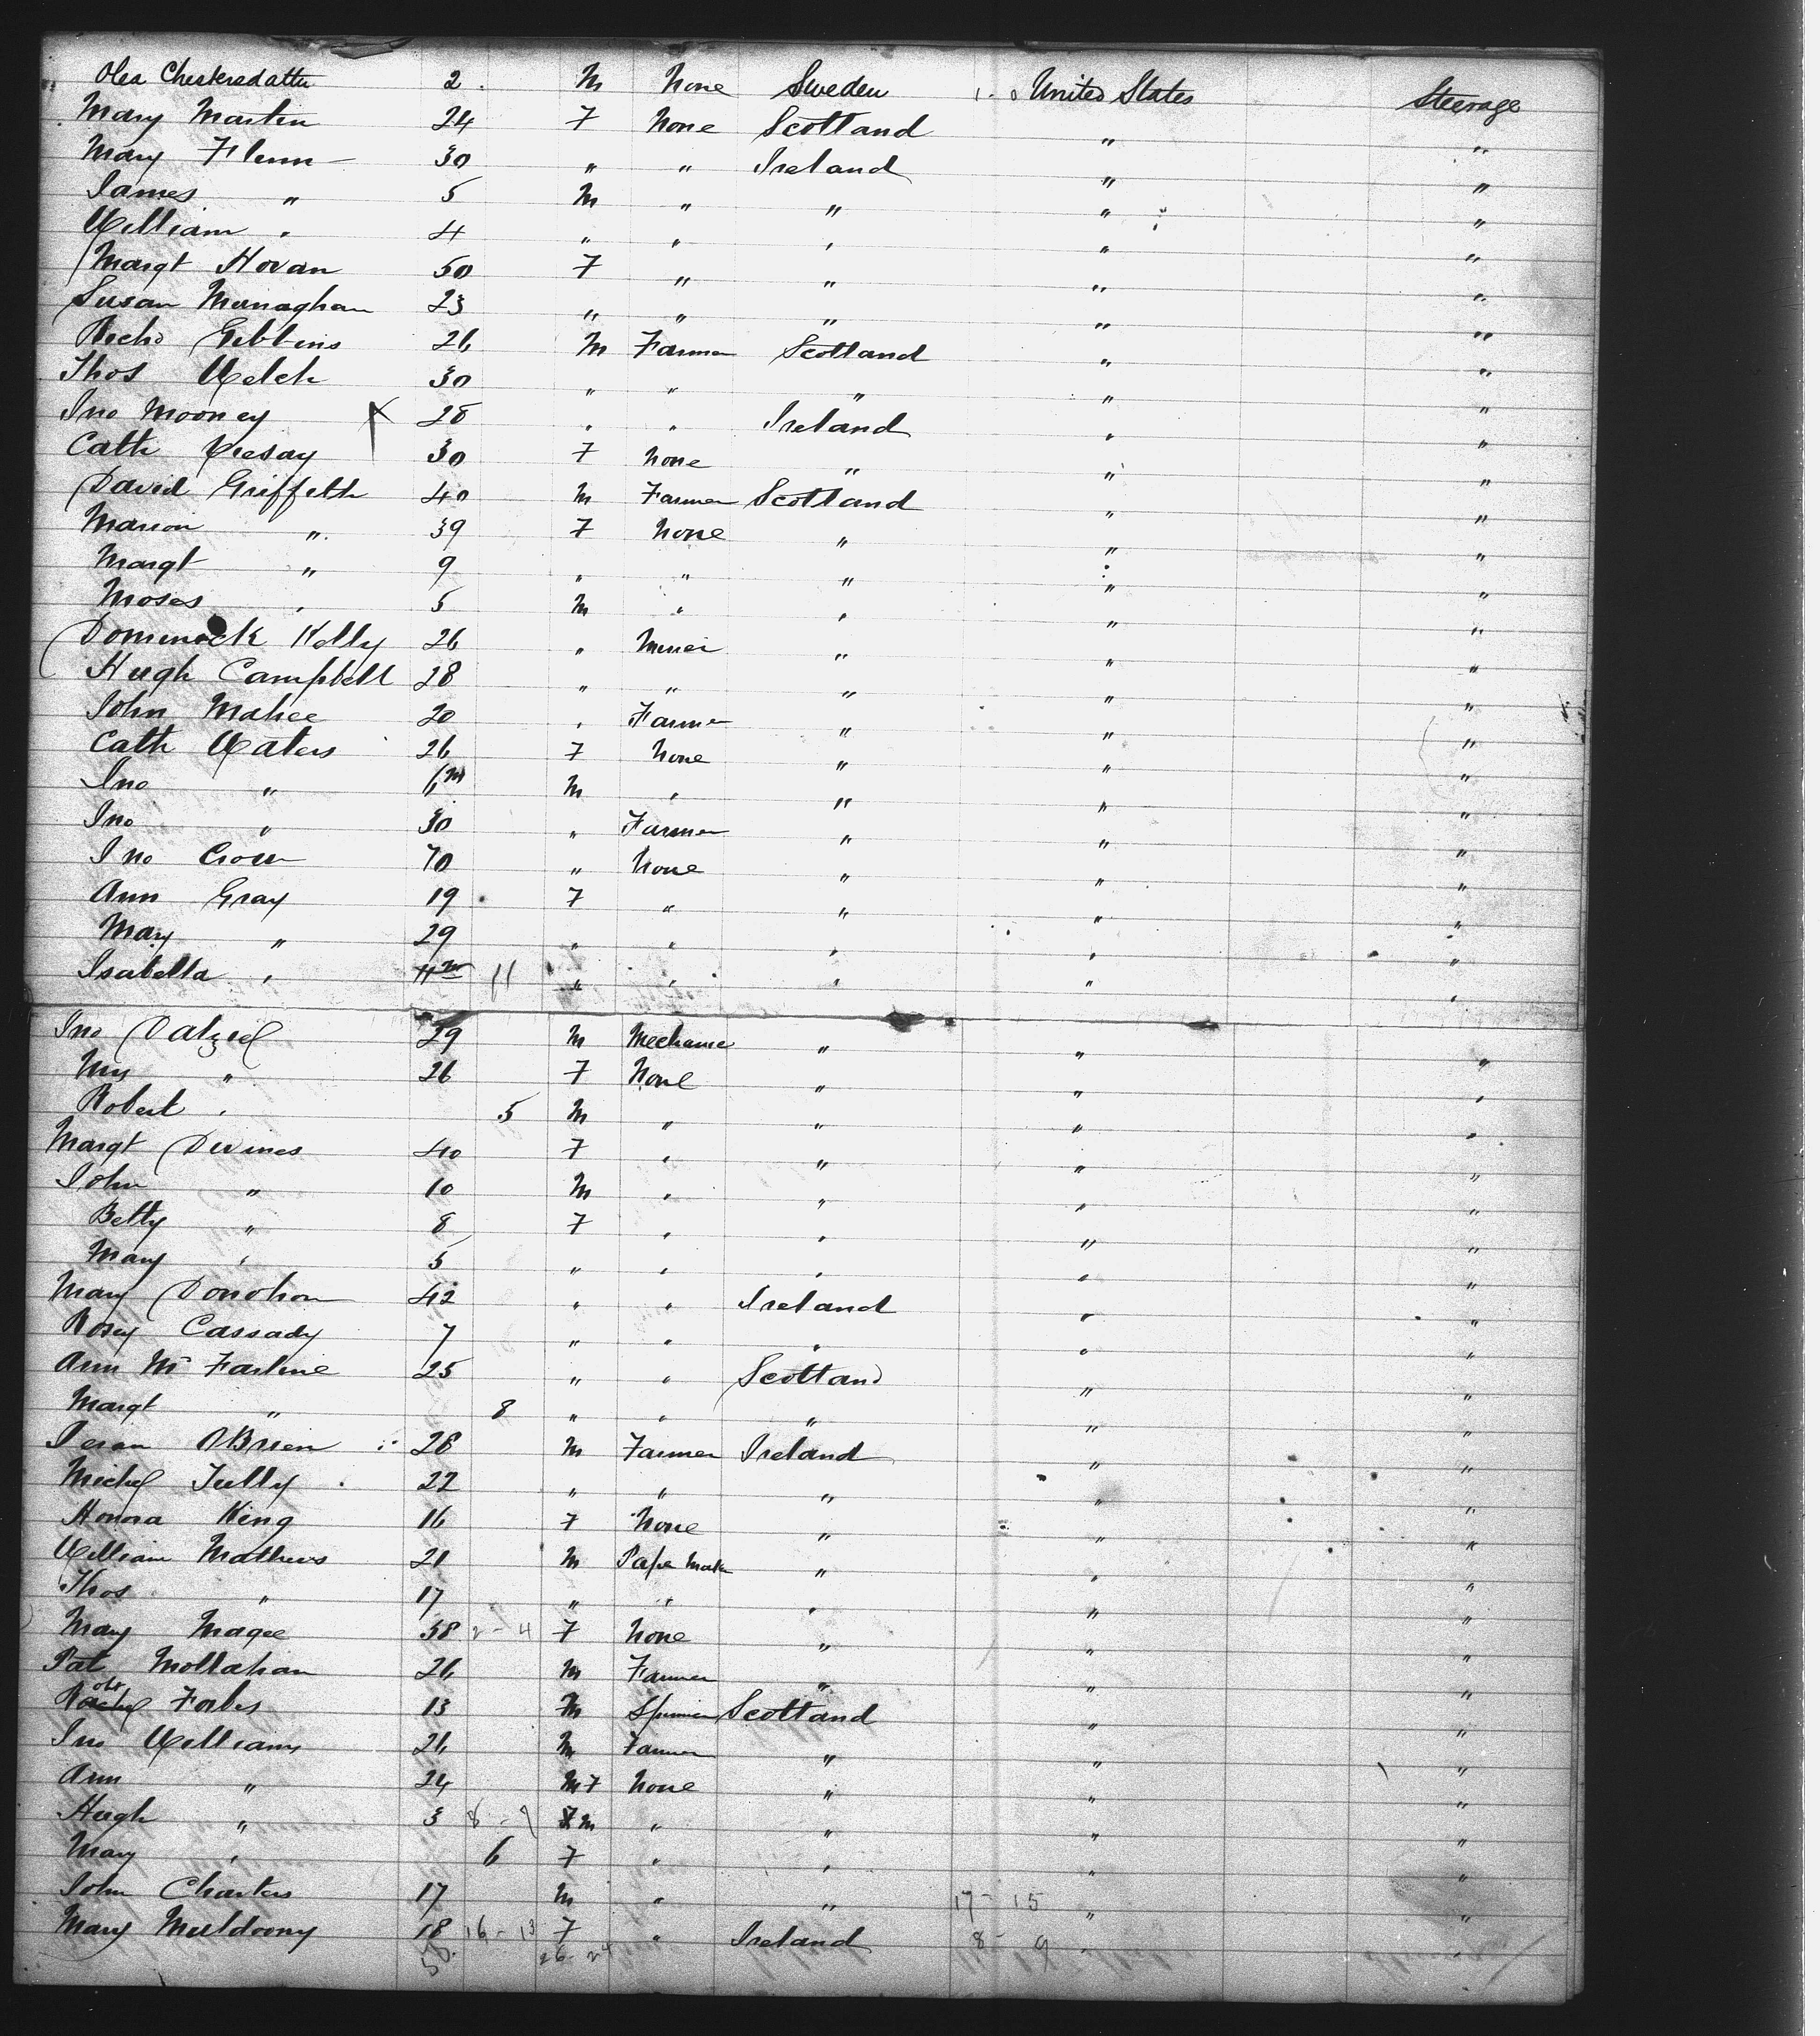 Olea Chestersdatter 2 M None Sweden United States Steerage
Mary Martin 24 F None Scotland " "
Mary Flenn 30 " " Ireland " "
James " 5 M " " " "
William " 4 " " " " "
Margt Horan 50 F " " " "
Susan Munaghan 23 " " " " "
Richd Gibbins 26 M Farmer Scotland " "
Thos Welch 30 " " " " "
Jno Mooney X 28 " " Ireland " "
Cath 30 F None " " "
David Griffeth 40 M Farmer Scotland " "
Marion " 39 F None " " "
Margt " 9 " " " " "
Moses " 5 M " " " "
Dominick Kelly 26 " Miner " " "
Hugh Campbell 28 " " " " "
John Mahee 20 " Farmer " " "
Cath Waters 26 F None " " "
Jno " 6m M " " " "
Jno " 30 " Farmer " " "
Jno Crow 70 " None " " "
Ann Gray 19 F " " " "
Mary " 29 " " " " "
Isabella " 11m 11 " " " " "
Jno Dalziel 29 M Mechanic " " "
Mrs " 26 F None " " "
Robert " 5 M " " " "
Margt Devines 40 F " " " "
John " 10 M " " " "
Betty " 8 F " " " "
Mary " 5 " " " " "
Mary Donohon 42 " " Ireland " "
Rosey Cassady 7 " " " " "
Ann Mc Farline 25 " " Scotland " "
Margt " 8 " " " " "
O'Brien 28 M Farmer Ireland " "
Michel Tully 22 " " " " "
Honora King 16 F None " " "
William Mathews 21 M Pape Maker " " "
Thos " 17 " " " " "
Mary Magee 58 2-4 F None " " "
Pat Mollahan 26 M Farmer " " "
Robt Forbes 13 M Spinner Scotland " "
Jno Williams 26 M Farmer " " "
Ann " 24 M F None " " "
Hugh " 3 8-9 F M " " " "
Mary " 6 F " " " "
John Charters 17 M " " 17-15 " "
Mary Muldoony 18 16-13 F " Ireland 8-9 " "
50 26-24